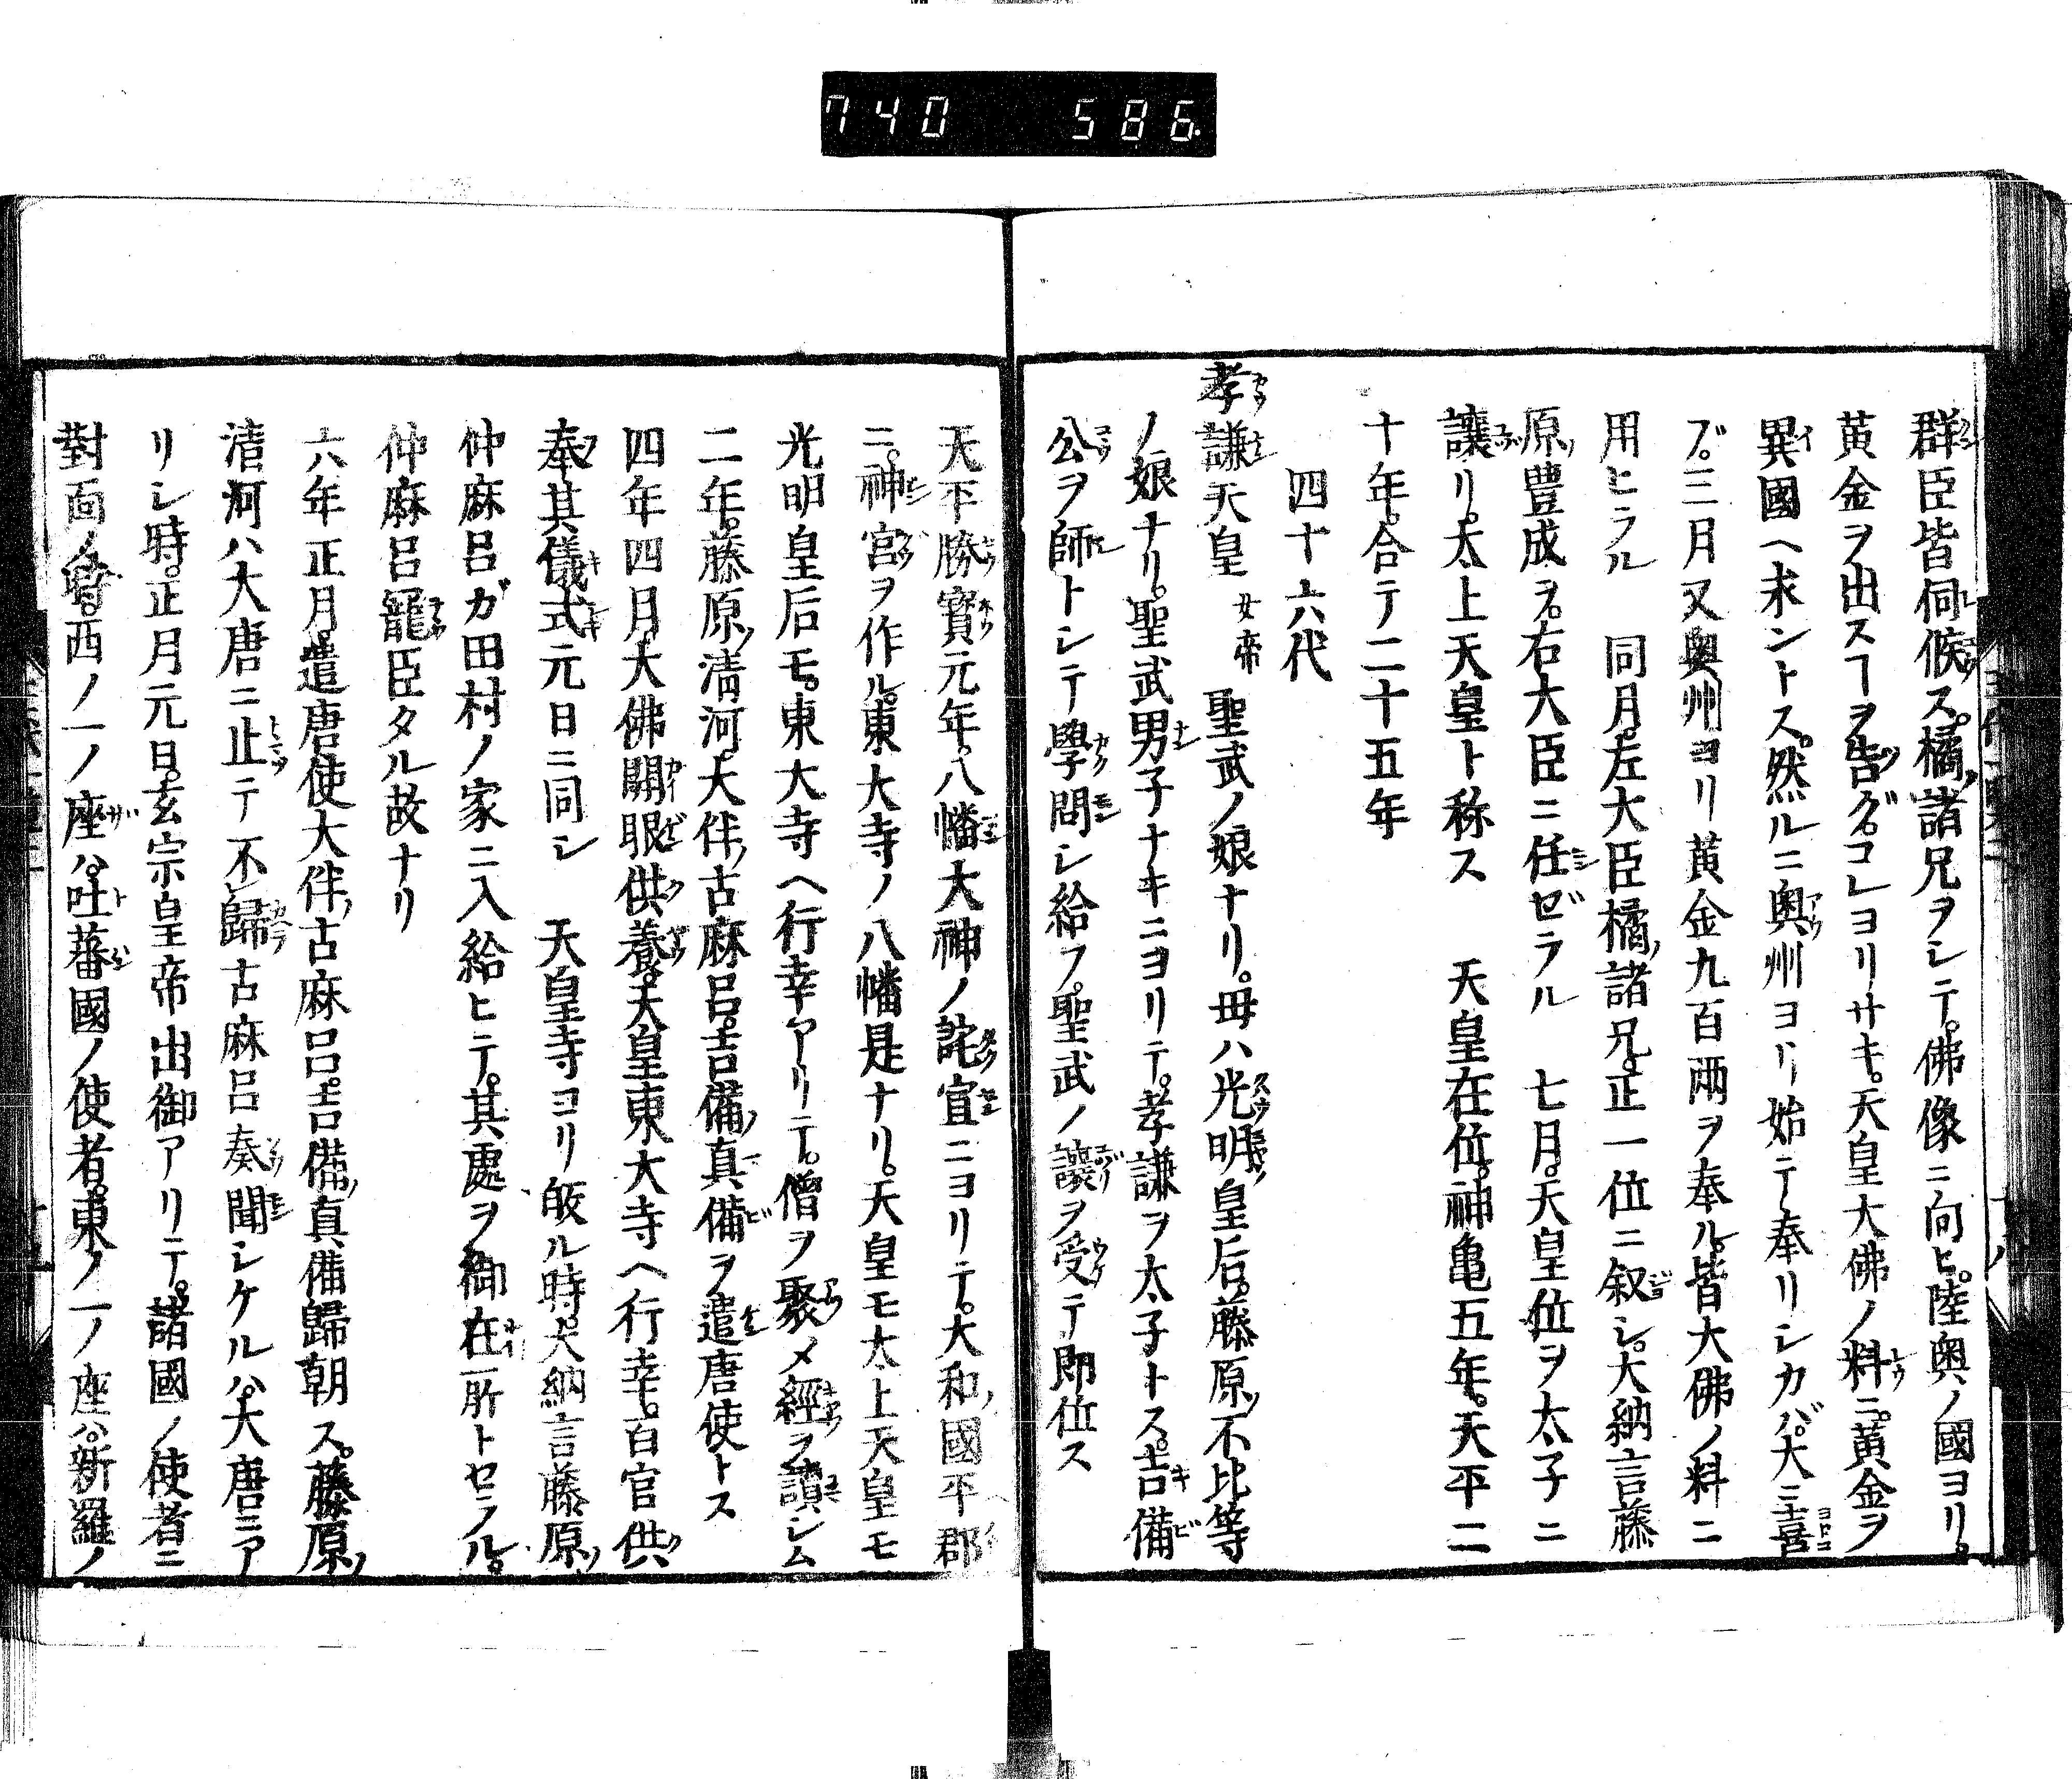 740 586
群臣皆伺候ス。橘ノ諸兄ヲシテ。佛像ニ向ヒ。陸奥ノ國ヨリ。
黄金ヲ出スヿヲ告グ。コレヨリサキ。天皇大佛ノ料ニ。黄金ヲ
異國ヘ求ントス。然ルニ奥州ヨリ始テ奉リシカバ。大ニ喜
ブ。三月又奥州ヨリ黄金九百兩ヲ奉ル。皆大佛ノ料ニ
用ヒラル 同月。左大臣橘ノ諸兄。正一位ニ叙シ。大納言藤
原ノ豊成ヲ。右大臣ニ任ゼラル 七月。天皇位ヲ太子ニ
讓リ。太上天皇ト称ス 天皇在位。神亀五年。天平二
十年。合テ二十五年
四十六代
孝謙天皇 女帝 聖武ノ娘ナリ。母ハ光明皇后。藤原ノ不比等
ノ娘ナリ。聖武男子ナキニヨリテ。孝謙ヲ太子トス。吉備
公ヲ師トシテ學問シ給フ。聖武ノ讓ヲ受テ即位ス
天平勝寳元年。八幡大神ノ詫宣ニヨリテ。大和ノ國平郡
ニ。神宮ヲ作ル。東大寺ノ八幡是ナリ。天皇モ太上天皇モ
光明皇后モ。東大寺ヘ行幸アリテ。僧ヲ聚メ經ヲ讀シム
二年。藤原ノ清河。大伴ノ古麻呂。吉備ノ真備ヲ遣唐使トス
四年四月大佛開眼供養。天皇東大寺ヘ行幸。百官供
奉其儀式元日ニ同シ 天皇寺ヨリ皈ル時。大納言藤原ノ
仲麻呂ガ田村ノ家ニ入給ヒテ。其處ヲ御在所トセラル。
仲麻呂寵臣タル故ナリ
六年正月遣唐使大伴ノ古麻呂。吉備ノ真備歸朝ス。藤原ノ
清河ハ大唐ニ止テ不歸古麻呂奏聞シケルハ。大唐ニア
リシ時。正月元日。玄宗皇帝出御アリテ。諸國ノ使者ニ
對面ノ時。西ノ一ノ座ハ。吐蕃國ノ使者。東ノ一ノ座ハ。新羅ノ